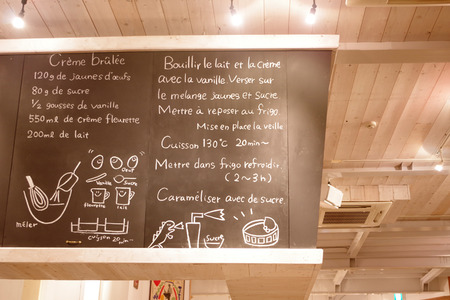 Crème brûlée
120g de jaunes d'œufs
80g de sucre
1/2 gousses de vanille
550ml de crème fleurette
200ml de lait
Oeuf
Vanille
Sucre
fleurette
lait
mêler
cuisson 20min~
Bouillir le lait et la crème
avec la vanille. Verser sur
le melange jaunes et sucre
Mettre à reposer au frigo.
Mise en place la veille
Cuisson 130°C 20min~
Mettre dans frigo refroidir
(2~3h)
Caraméliser avec de sucre
Sucre